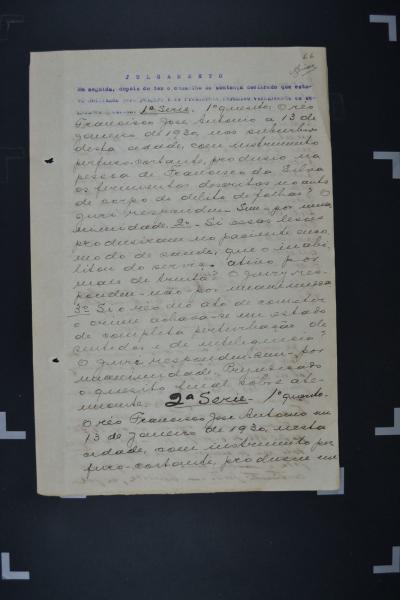 66
JULGAMENTO
Em seguida, depois de ter o conselho de sentença declarado que esta-
1ª Serie. 1º quesito. O réo
Francisco José Antonio a 13 de
janeiro de 1930, nos suburbios
desta cidade, com instrumento
perfuro-cortante, produsio na
pessoa de Francisco da Silva
os ferimentos descritos no auto
de corpo de delito de folhas? O
jury respondeu Sim por una-
nimidade. 2º Si essas lesões
produsiram no paciente incom-
modo de saude, que o inabi-
litou do serviço activo por
mais de trinta? O jury res-
pondeu - não por unanimidade
3º Si o réo no ato de cometer
o crime achava-se em estado
de completa perturbação de
sentidos e de inteligencia?
O jury respondeu - sim - por
unanimidade.
o quesito legal sobre ate-
nuante. 2ª Serie - 1º quesito.
O réo Francisco José Antonio em
13 de janeiro de 1930, nesta
cidade, com instrumento per-
furo-cortante, produsiu